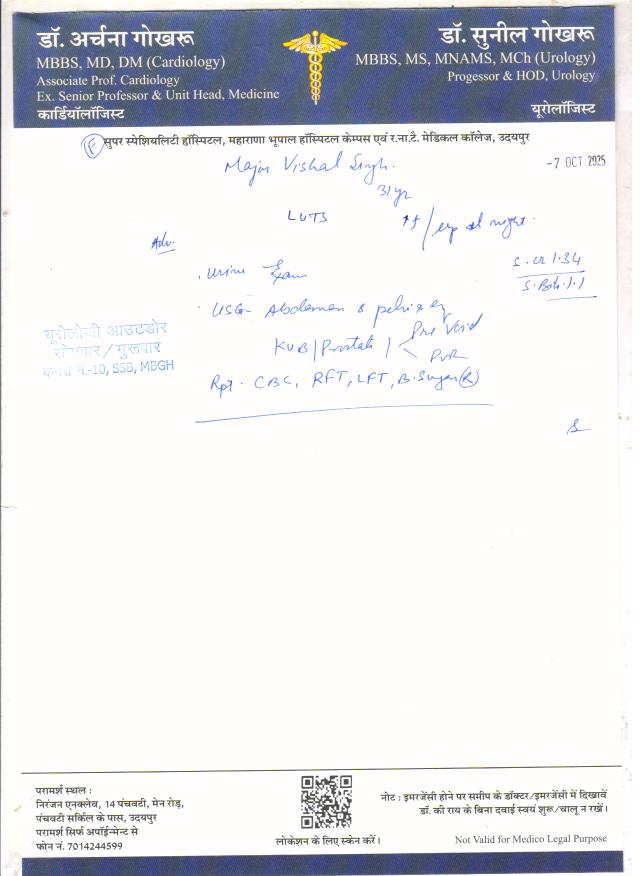 डॉ. अर्चना गोखरू
MBBS, MD, DM (Cardiology)
Associate Prof. Cardiology
Ex. Senior Professor & Unit Head, Medicine
कार्डियॉलॉजिस्ट
डॉ. सुनील गोखरू
MBBS, MS, MNAMS, MCh (Urology)
Progessor & HOD, Urology
यूरोलॉजिस्ट
F सुपर स्पेशियलिटी हॉस्पिटल, महाराणा भूपाल हॉस्पिटल केम्पस एवं र.ना.टै. मेडिकल कॉलेज, उदयपुर
Major Vishal Singh.
-7 OCT 2025
31 yr
LUTS
/ esp at night.
Adv.
S. Cr 1.34
. Urine Exam
S. Bili. 1.1
. USG - Abdomen & pelvis
यूरोलॉजी आउटडोर
सोमवार / गुरूवार
कमरा नं.-10, SSB, MBGH
KUB / Prostate / Pre Void
PVR
Rpt. CBC, RFT, LFT, B. Sugar (R)
परामर्श स्थल :
निरंजन एनक्लेव, 14 पंचवटी, मेन रोड़,
पंचवटी सर्किल के पास, उदयपुर
परामर्श सिर्फ अपॉईन्मेन्ट से
फोन नं. 7014244599
लोकेशन के लिए स्केन करें।
नोट : इमरजेंसी होने पर समीप के डॉक्टर/इमरजेंसी में दिखावें
डॉ. की राय के बिना दवाई स्वयं शुरू/चालू न रखें।
Not Valid for Medico Legal Purpose